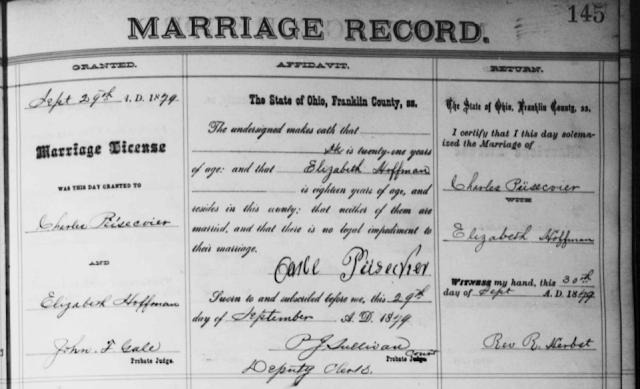 145
MARRIAGE RECORD.
GRANTED.
Sept 29th A. D. 1879
Marriage License
WAS THIS DAY GRANTED TO
Charles Püsecvier
AND
Elizabeth Hoffman
John T Gale
Probate Judge.
AFFIDAVIT.
The State of Ohio, Franklin County, ss.
The undersigned makes oath that
He is twenty-one years
of age: and that Elizabeth Hoffman
is eighteen years of age, and
resides in this county; that neither of them are
married, and that there is no legal impediment to
their marriage.
Carl Püsecker
Sworn to and subscribed before me, this 29th
day of September A. D. 1879
P J Sullivan
Probate Court
Deputy Clerk.
RETURN.
The State of Ohio, Franklin County, ss.
I certify that I this day solemn-
ized the Marriage of
Charles Püsecvier
WITH
Elizabeth Hoffman
WITNESS my hand, this 30th
day of Sept A. D. 1879
Rev R. Herbst